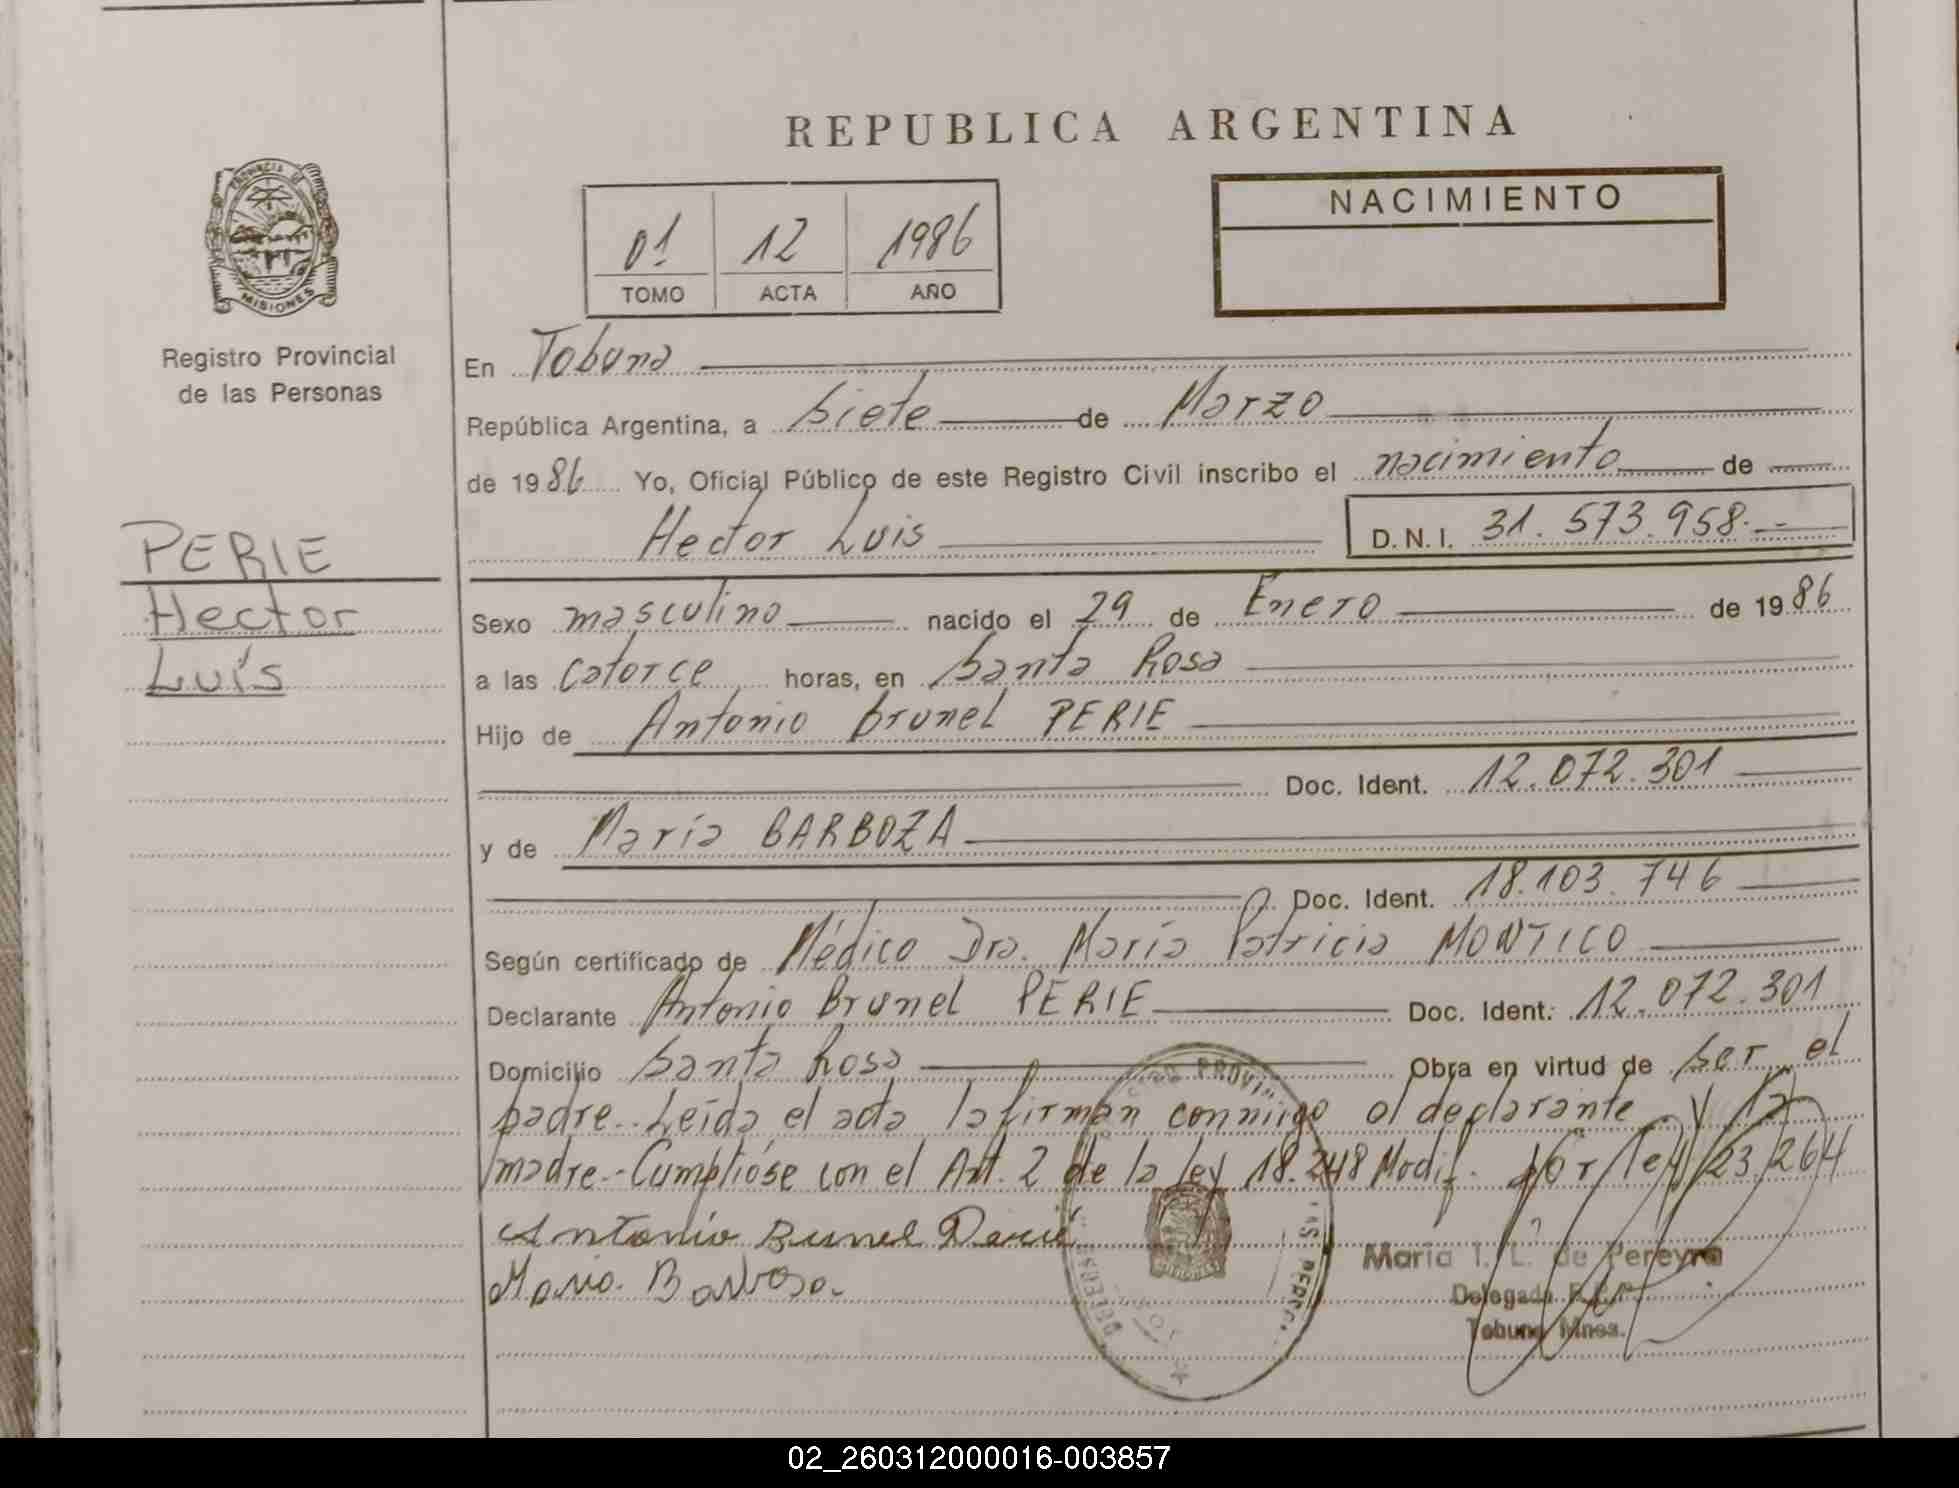 REPUBLICA ARGENTINA
PROVINCIA DE
MISIONES
Registro Provincial
de las Personas
PERIE
Hector
Luís
01 12 1986
TOMO ACTA AÑO
NACIMIENTO
En Tobuna
República Argentina, a siete de Marzo
de 1986 Yo, Oficial Público de este Registro Civil inscribo el nacimiento de
Hector Luis D.N.I. 31.573.958.-
Sexo masculino nacido el 29 de Enero de 1986
a las catorce horas, en Santa Rosa
Hijo de Antonio Brunel PERIE
Doc. Ident. 12.072.301
y de María BARBOZA
Doc. Ident. 18.103.746
Según certificado de Médico Dra. María Patricia MONTICO
Declarante Antonio Brunel PERIE Doc. Ident. 12.072.301
Domicilio Santa Rosa Obra en virtud de ser el
padre.. Leída el acta la firman conmigo el declarante y la
madre.- Cumplióse con el Art. 2 de la ley 18.248 Modif. por ley 23.264
Antonio Brunel Perié
Maria. Barbosa.
PROVIN
María I. L. de Pereyra
Delegada R.C.P.
Tobuna Mnes.
02_260312000016-003857